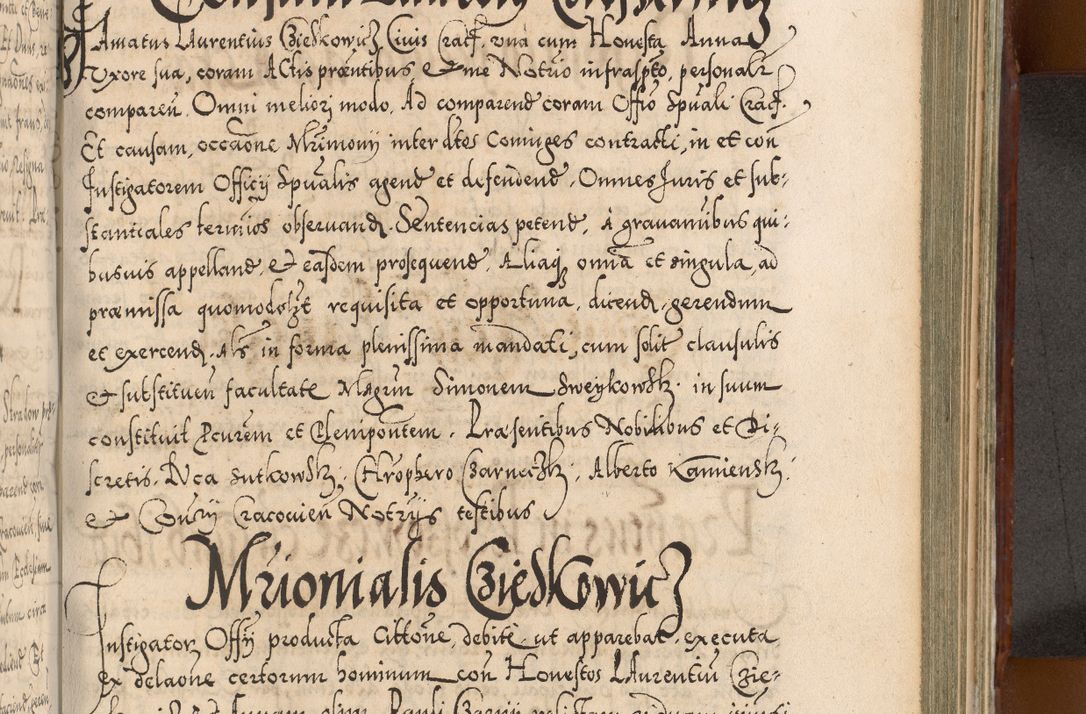 Amatus Laurentius Cziedkowicz Civis Cracf. una cum Honesta Anna
Uxore sua, coram Actis pręntibus et me Notrio infraspto, personalr
comparen. Omni meliorj modo. Ad comparend coram Offio Spuali Cracf.
Et causam, occaone Mrimonij inter dtos Coniuges contracti, in et con
Instigatorem Officij Spualis agend et defendend. Omnes Juris et sub-
stantiales termios observand. Sentencias petend, A gravaminibus qui-
busvis appelland, et easdem prosequend, Aliaq omnia et singula, ad
præmissa quomodolzt requisita et opportuna, dicend, gerendum
et exercend. Als in forma plenissima mandati, cum solit clausulis
et substituen facultate Mgrum Simonem Sweykowsk. in suum
constituit Pcurem et Plenipontem. Præsentibus Nobilibus et Di-
scretis. Luca Sutkowsk. Chrophero Czarneczk. Alberto Kamiensk.
et Consrij Cracovien Notrijs testibus
Mrionialis Cziedkowicz
Instigator Offij producta Cittone, debite ut apparebat, executa
ex delaone certorum hominum con Honestos Laurentium Czie-